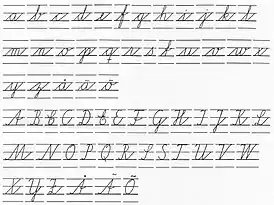 a b c d e f g h i j k l
m n o p q r s t u v w x
y z å ä ö
A B C D E F G H I J K L
M N O P Q R S T U V W
X Y Z Å Ä Ö